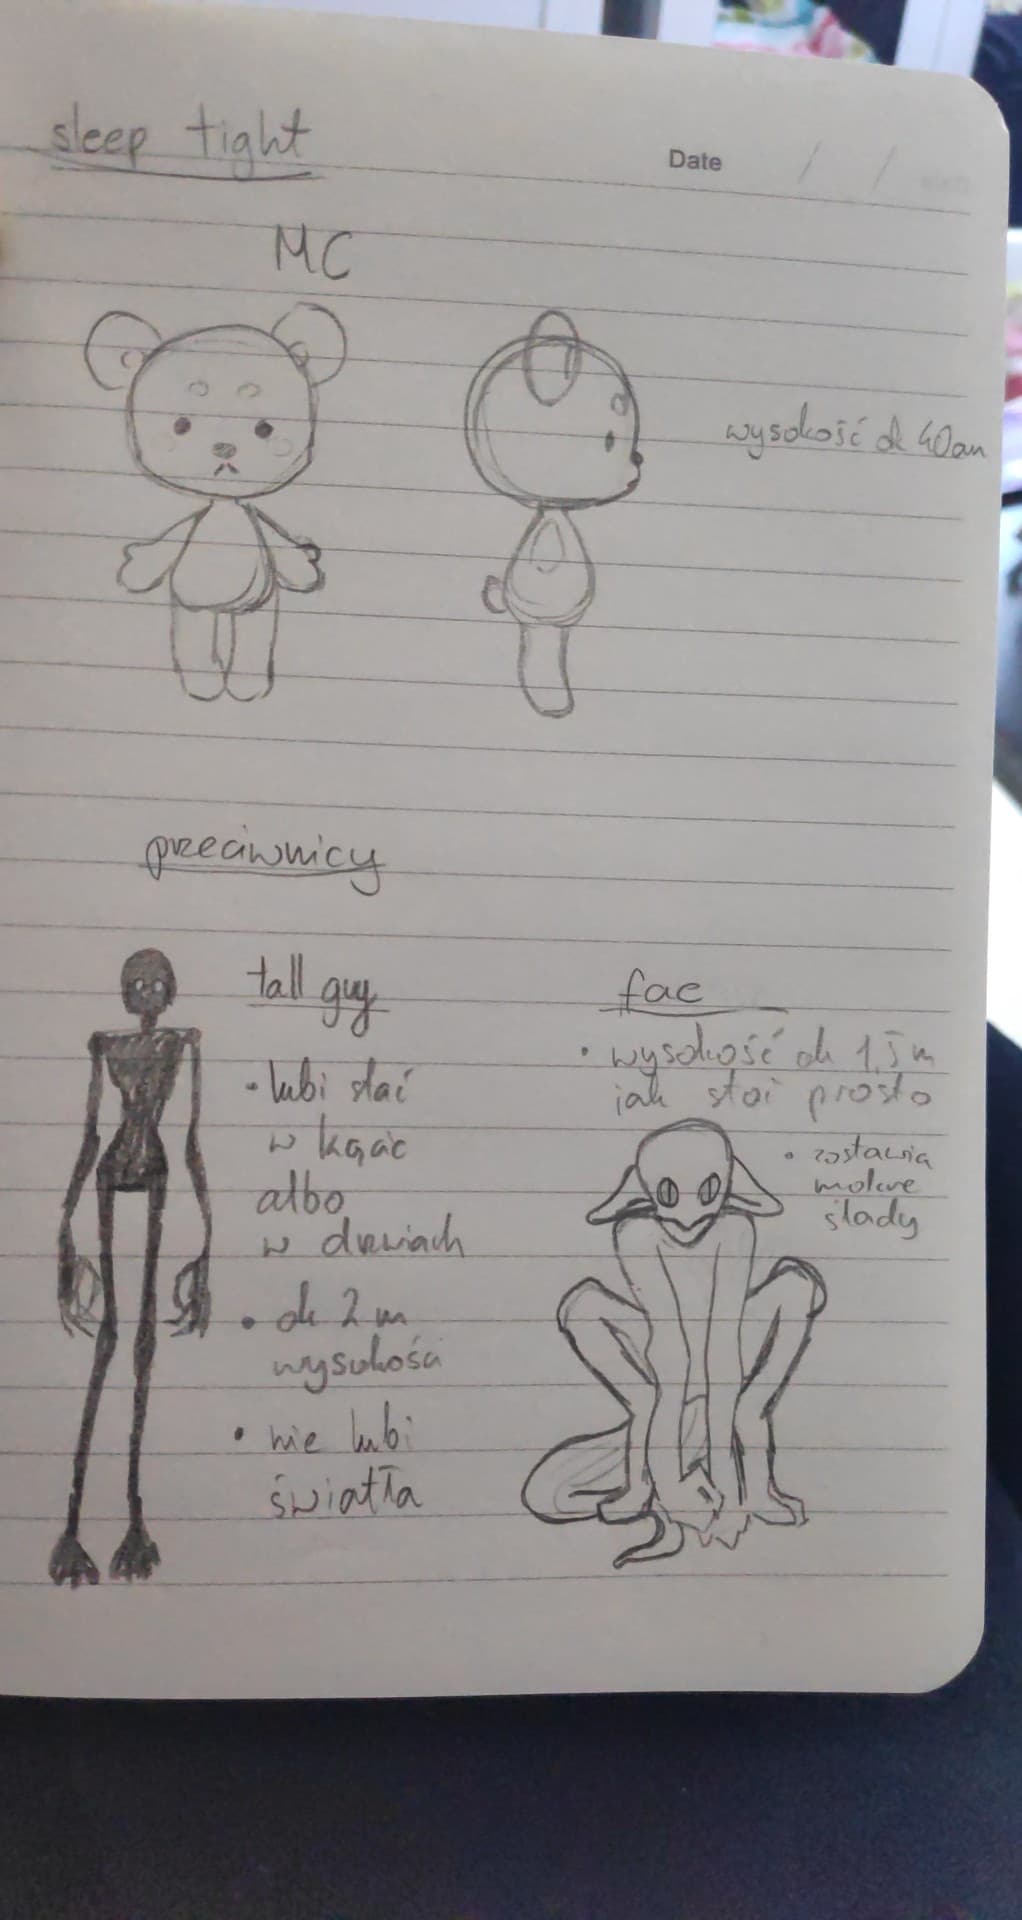 sleep tight
Date / /
MC
wysokość ok 40cm
przeciwnicy
tall guy
• lubi stać
w kącie
albo
w drzwiach
• ok 2 m
wysokości
• nie lubi
światła
fae
• wysokość ok 1,5 m
jak stoi prosto
• zostawia
mokre
ślady